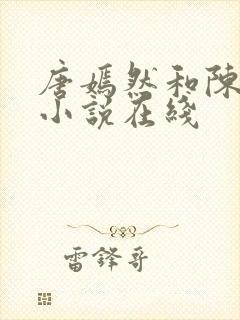 唐嫣然和陳
小說在綫
雷鋒哥